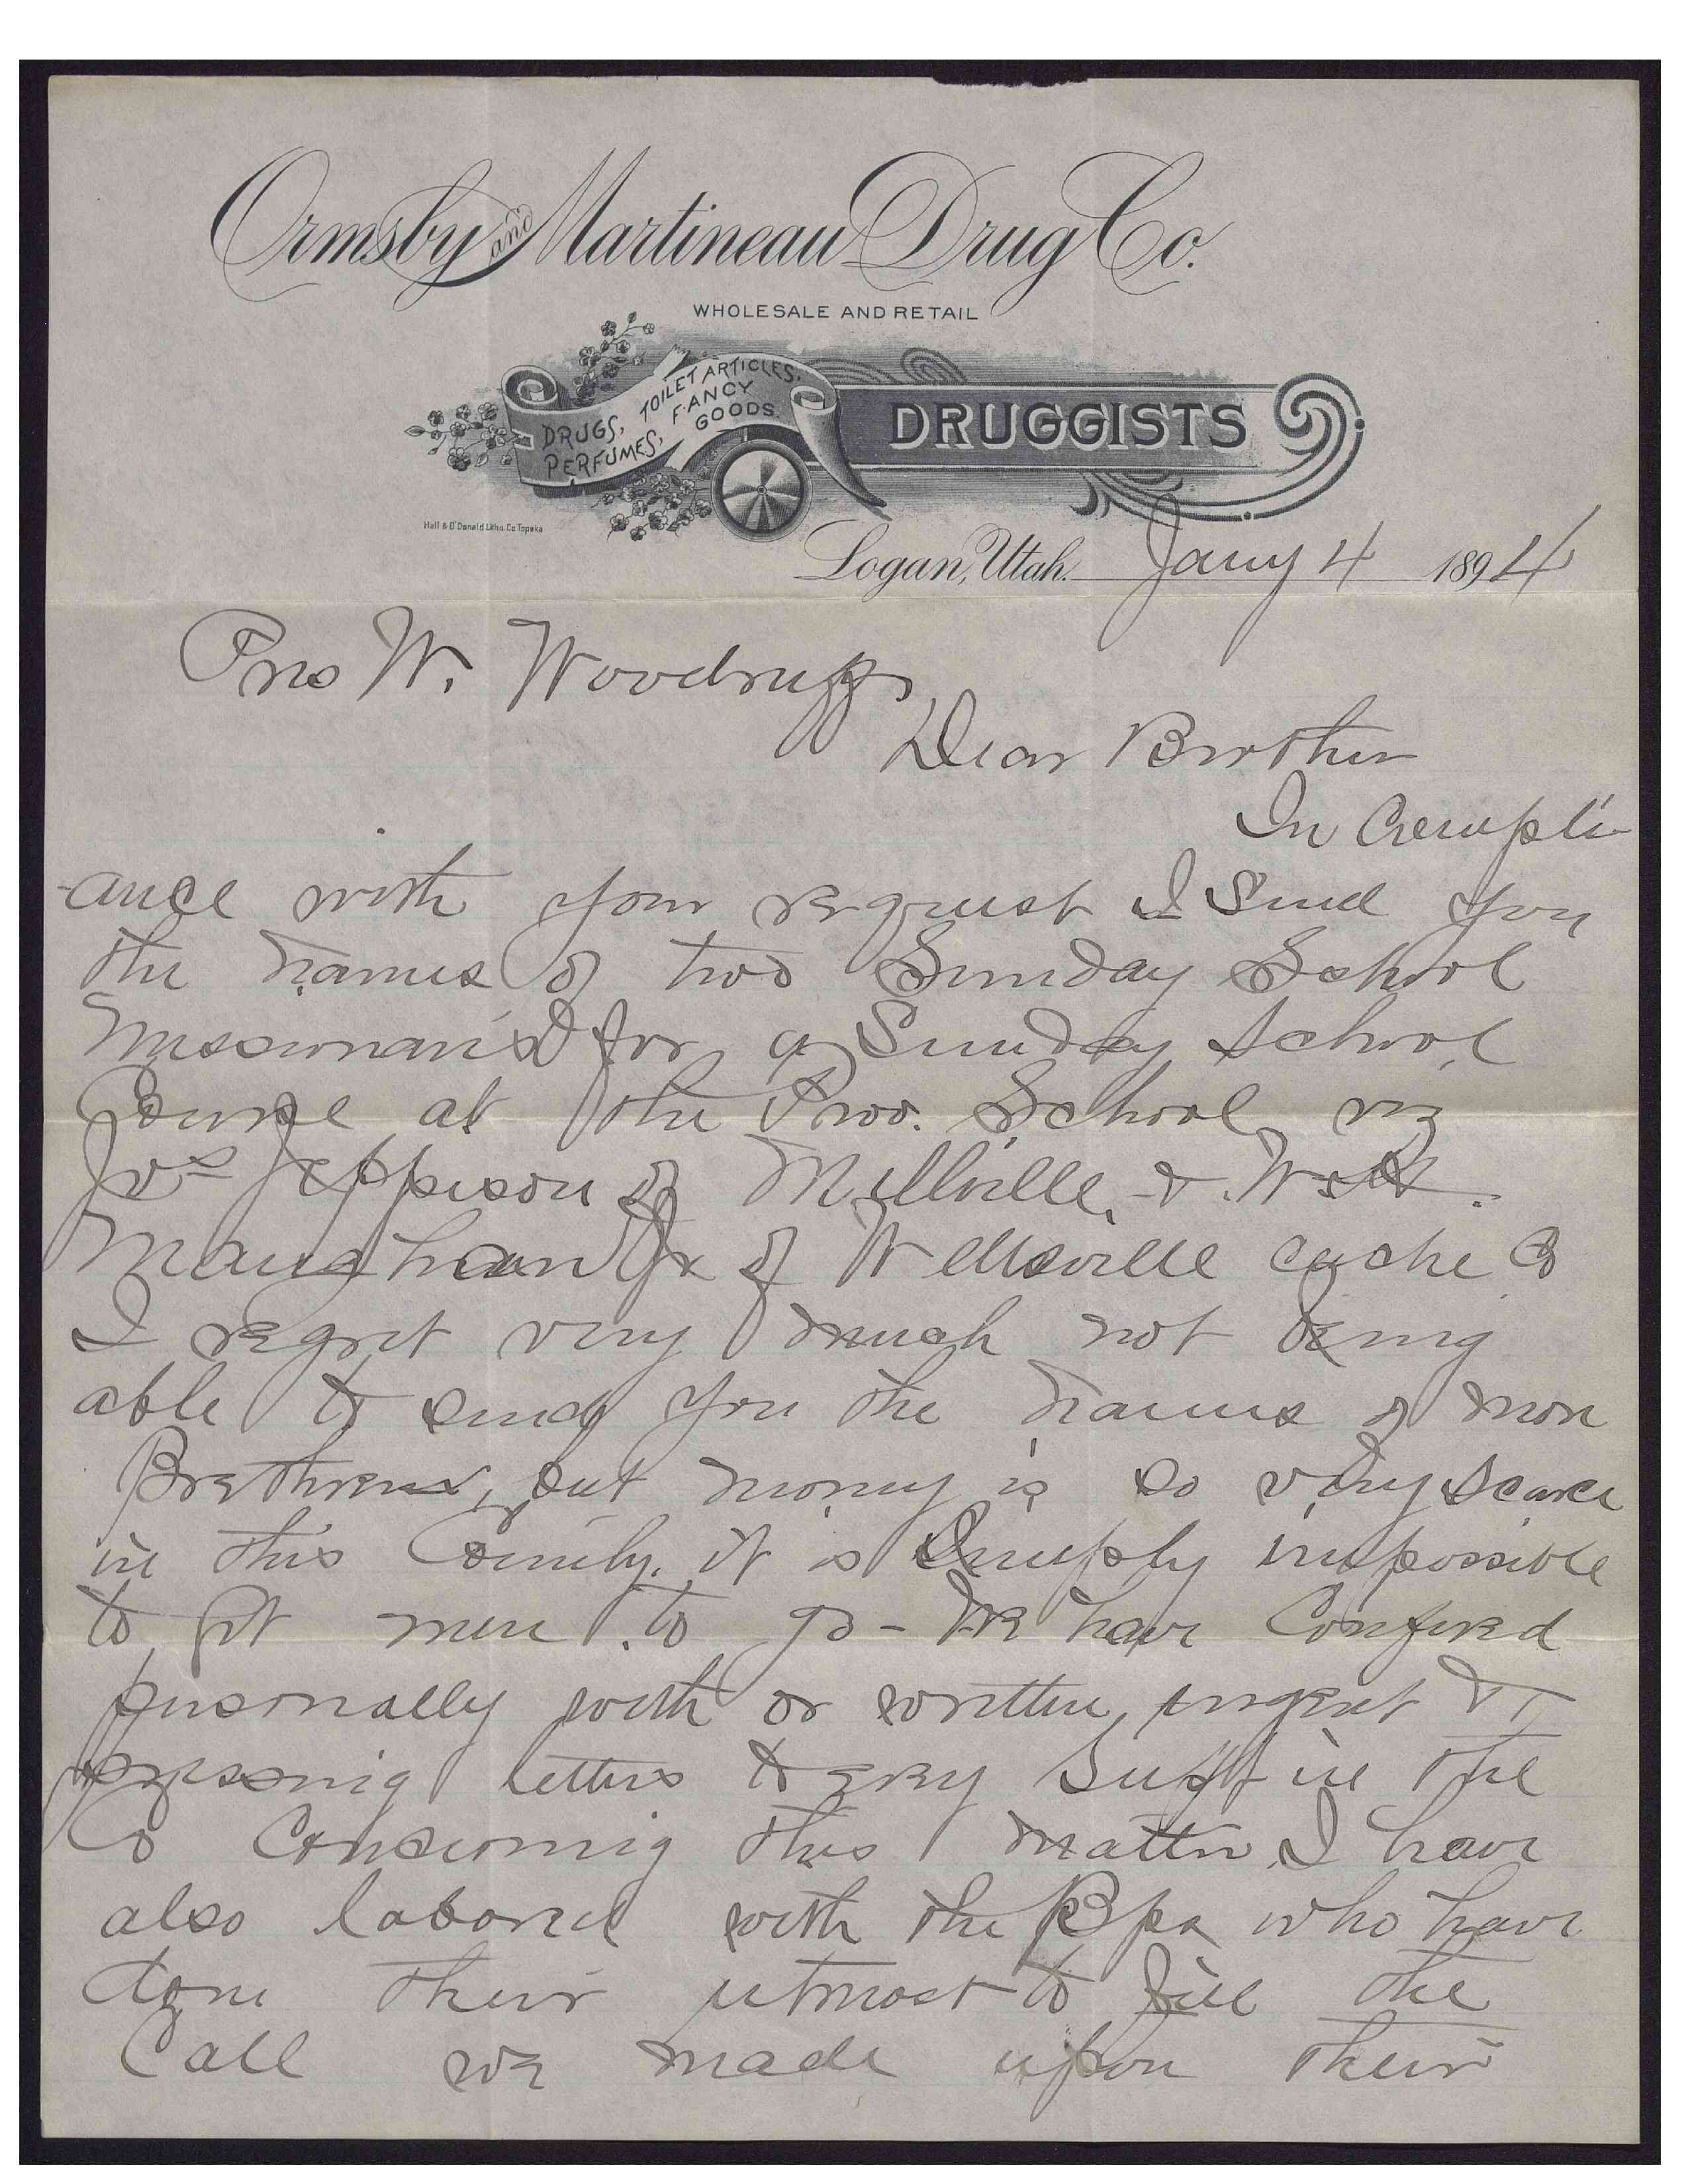 Ormsby and Martineau Drug Co.
WHOLESALE AND RETAIL
DRUGS, TOILET ARTICLES,
PERFUMES, FANCY GOODS.
DRUGGISTS
Hall & O'Donald Litho. Co Topeka
Logan, Utah. Jany 4 1894
Pres W. Woodruff
Dear Brother
In Compli-
-ance with your request I Send you
the names of two Sunday School
Missionaries for a Sunday School
Course at the Prov. School, viz
Jos Jeppeson of Millville, & W. H.
Maughan Jr of Wellsville Cache Co
I regret very much not being
able to send you the names of more
Brethren, but money is so very scarce
in this County, it is Simply impossible
to get men to go - We have Confered
personally with or written urgent &
pressing letters to every Supt in the
Co Concerning this matter, I have
also labored with the Bps who have
done their utmost to fill the
Call we made upon their